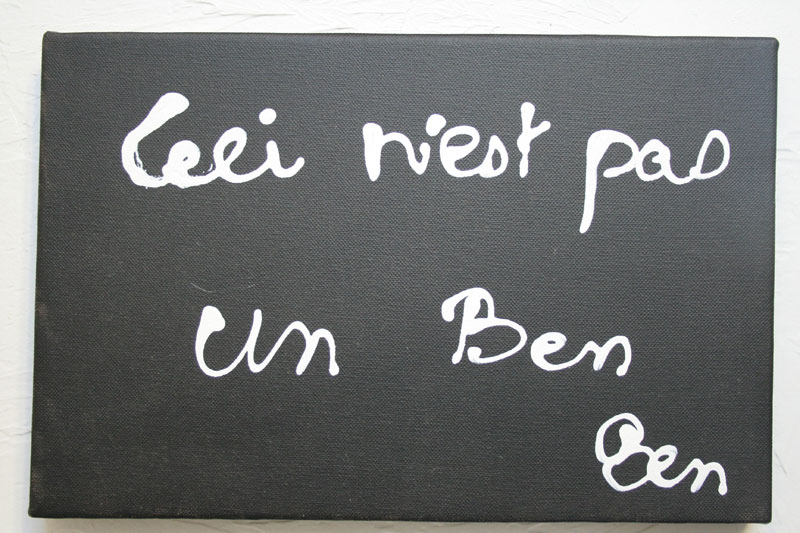 Ceci n'est pas
un Ben
Ben